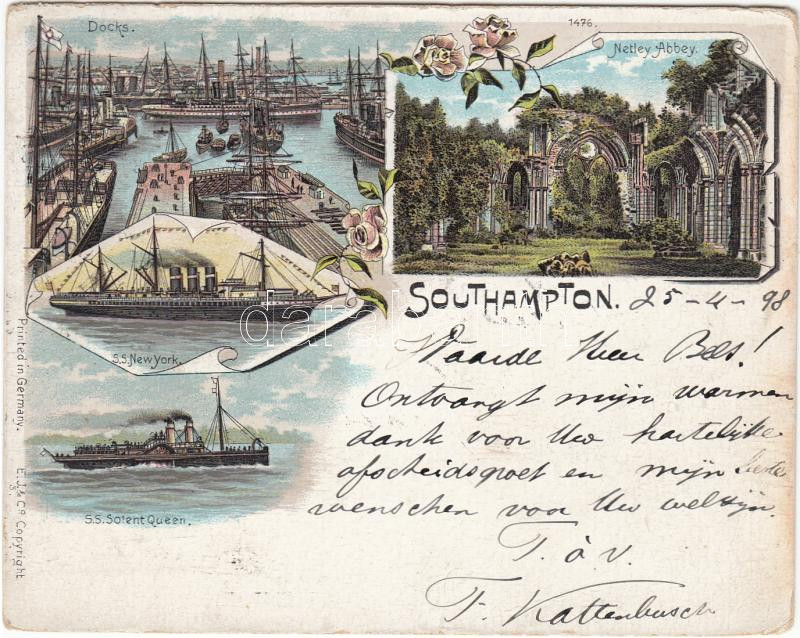 Docks.
1476.
Netley Abbey.
SOUTHAMPTON. 25-4-98
S.S. New York.
S.S. Solent Queen.
Waarde Heer Bels!
Ontvangt mijn warmen
dank voor Uw hartelijke
afscheidsgroet en mijn beste
wenschen voor Uw welzijn.
T. à. v.
F. Kattenbusch
Printed in Germany.
E. J. & Co. Copyright
S.
darabanth